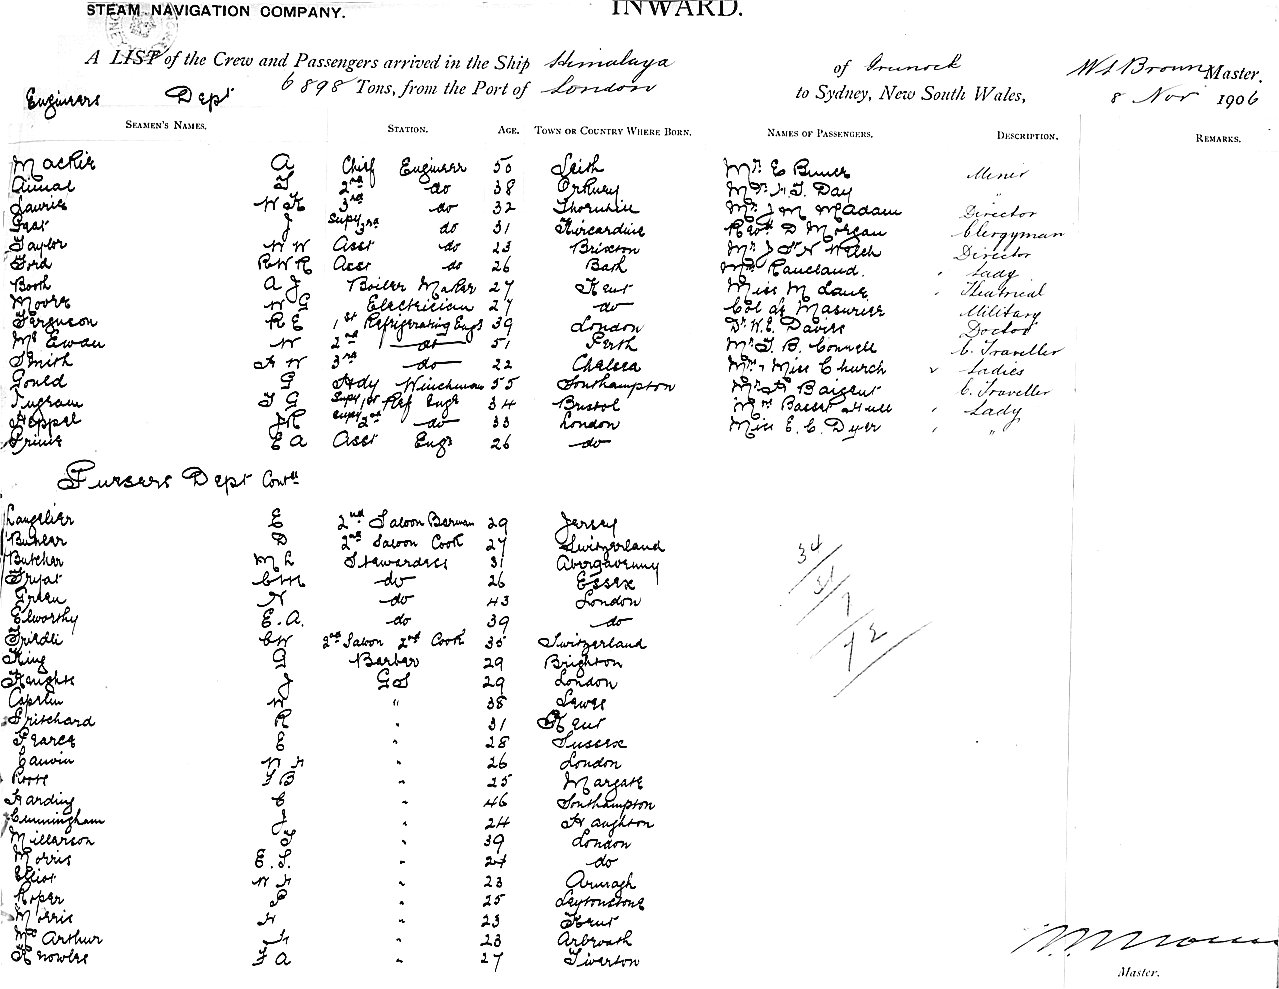 STEAM NAVIGATION COMPANY.
INWARD.
A LIST of the Crew and Passengers arrived in the Ship Himalaya of Grunock W L Brown Master,
6898 Tons, from the Port of London to Sydney, New South Wales, 8 Nov 1906
Engineers Dept
SEAMEN'S NAMES. STATION. AGE. TOWN OR COUNTRY WHERE BORN. NAMES OF PASSENGERS. DESCRIPTION. REMARKS.
Mackie A Chief Engineer 50 Leith Mr. E Miner
2nd do 38 Orkney Day "
Laurie W 3rd do 32 Thornhill Mr. J M McAdam Director
J Supy 3rd do 31 Kincardine Revd. D Morgan Clergyman
Taylor W W Asst do 23 Brixton Mr J Welch Director
Ford R W R Asst do 26 Bath Lady
Booth A J Boiler Maker 27 Kent Miss M Lane Theatrical
Moore W G Electrician 27 do Military
Ferguson R E 1st Refrigerating Engr 39 London Dr. W. E. Davies Doctor
McEwan W 2nd do 51 Perth Mr. T. B. Connell C. Traveller
Smith A W 3rd do 22 Chelsea Miss Church Ladies
Gould G Hdy Winchman 55 Southampton Baigent C. Traveller
Ingram T G Supy 1st Ref Engr 34 Bristol Mrs Basset Hull Lady
Supy 2nd do 33 London Miss E. C. Dyer "
E A Asst Engr 26 do
Pursers Dept Contd
Langelier E 2nd Saloon Barman 29 Jersey
D 2nd Saloon Cook 27 Switzerland
Butcher M L Stewardess 31 Abergavenny
C M do 26 Essex
Green N do 43 London
Elworthy E. A. do 39 do
C W 2nd Saloon 2nd Cook 30 Switzerland
King Barber 29 Brighton
Knights J G S 29 London
Capelin W " 38 Lewes
Pritchard R " 31 Kent
Pearce E " 28 Sussex
W H " 26 London
F B " 25 Margate
Harding C " 46 Southampton
Cunningham J " 24 Haughton
Millerson " 39 London
Morris E. S. " 24 do
Elliot W H " 23 Armagh
Roper " 25 Leytonstone
Morris H " 23 Kent
McArthur " 23 Arbroath
Knowles F A " 27 Tiverton
34
31
7
72
Master.